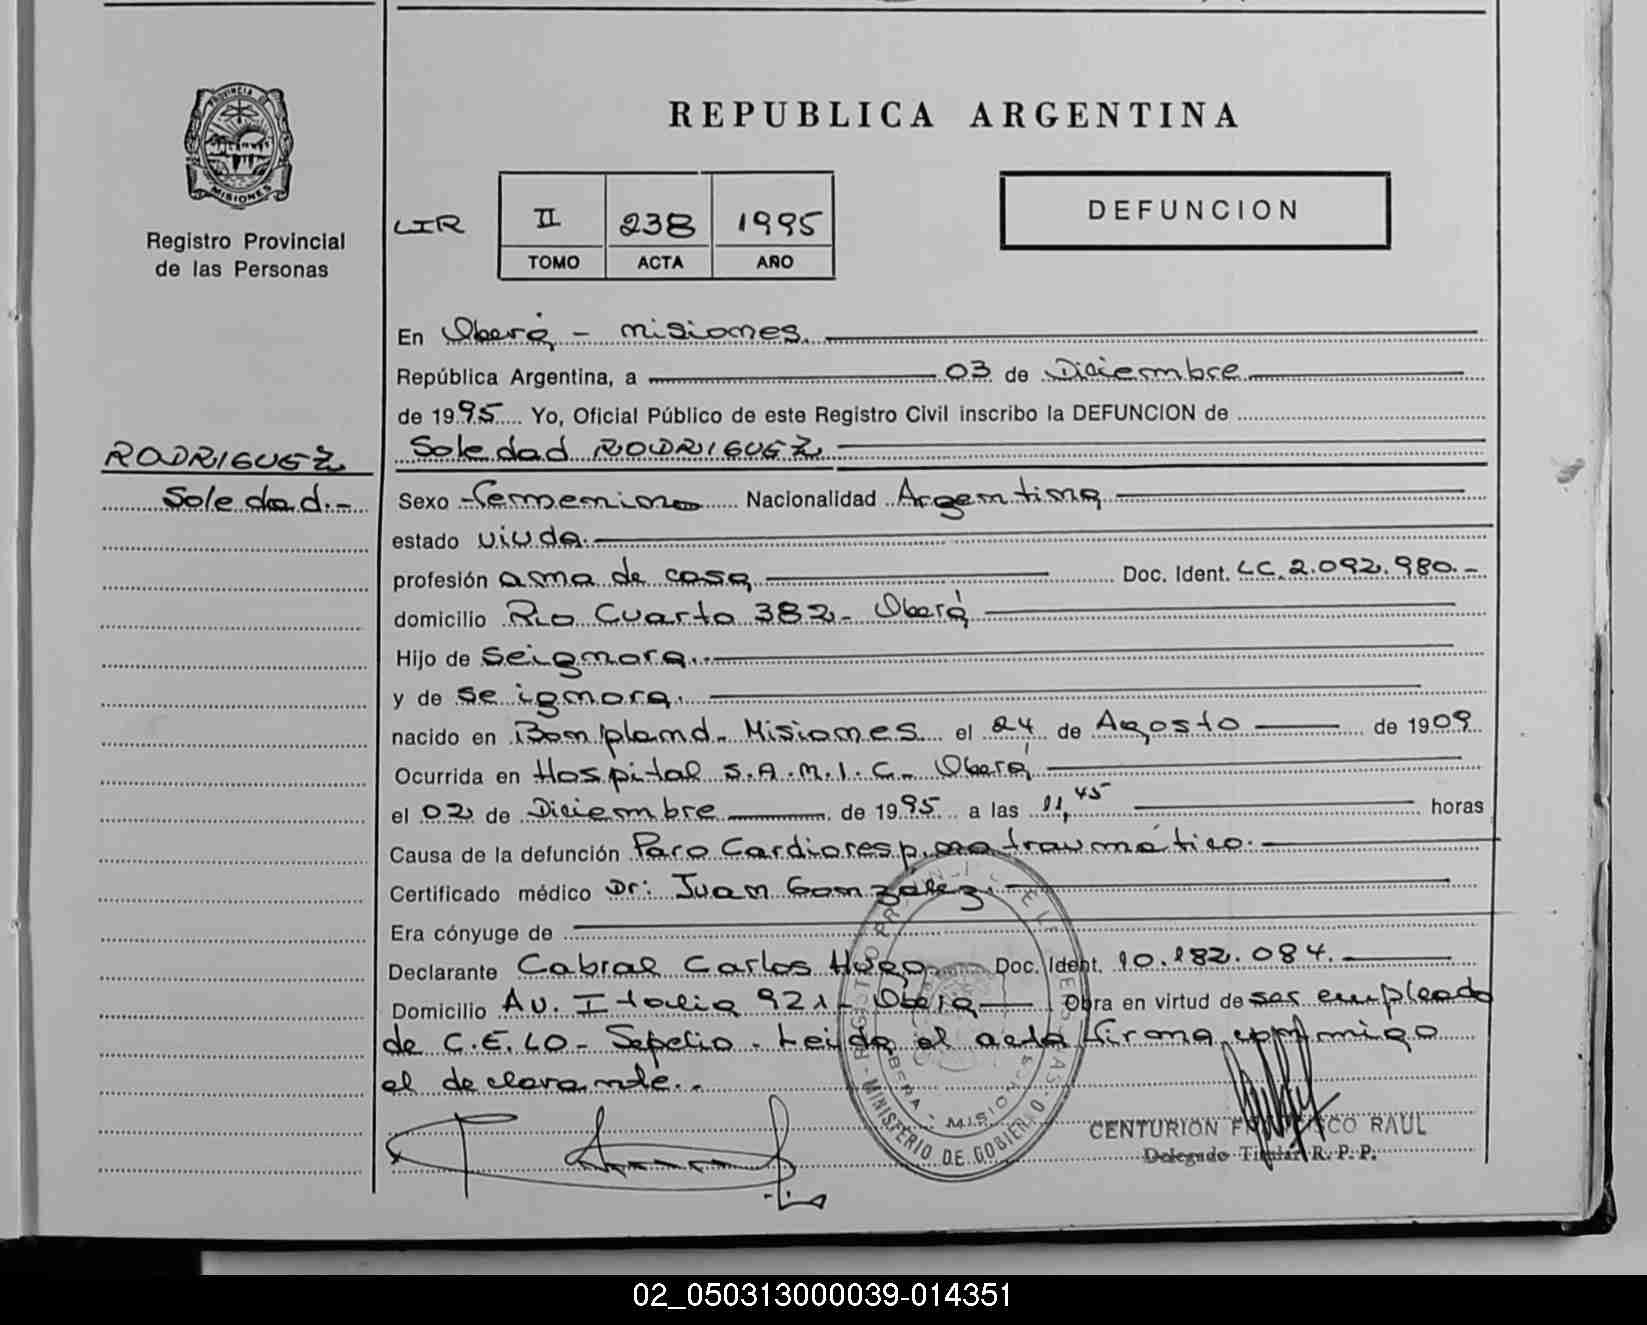 PROVINCIA DE
MISIONES
Registro Provincial
de las Personas
REPUBLICA ARGENTINA
LIR II 238 1995
TOMO ACTA AÑO
DEFUNCION
En Oberá - misiones.
República Argentina, a 03 de Diciembre
de 1995 Yo, Oficial Público de este Registro Civil inscribo la DEFUNCION de
RODRIGUEZ
Soledad RODRIGUEZ
Soledad.-
Sexo femenino Nacionalidad Argentina
estado viuda.
profesión ama de casa Doc. Ident. LC.2.092.980.-
domicilio Rio Cuarto 382- Oberá
Hijo de se ignora..
y de se ignora.
nacido en Bompland- Misiones el 24 de Agosto de 1909
Ocurrida en Hospital S.A.M.I.C- Oberá
el 02 de Diciembre de 1995 a las 11,45 horas
Causa de la defunción Paro Cardioresp. no traumático.
Certificado médico Dr: Juan González.
Era cónyuge de
Declarante Cabral Carlos Hugo Doc. Ident. 10.182.084.
Domicilio Av. Italia 921- Oberá Obra en virtud de ser empleado
de C.E.LO- Sepelio. Leida el acta firma conmigo
el declarante..
MINISTERIO DE GOBIERNO
MISIONES
CENTURION FRANCISCO RAUL
Delegado Titular R. P. P.
02_050313000039-014351